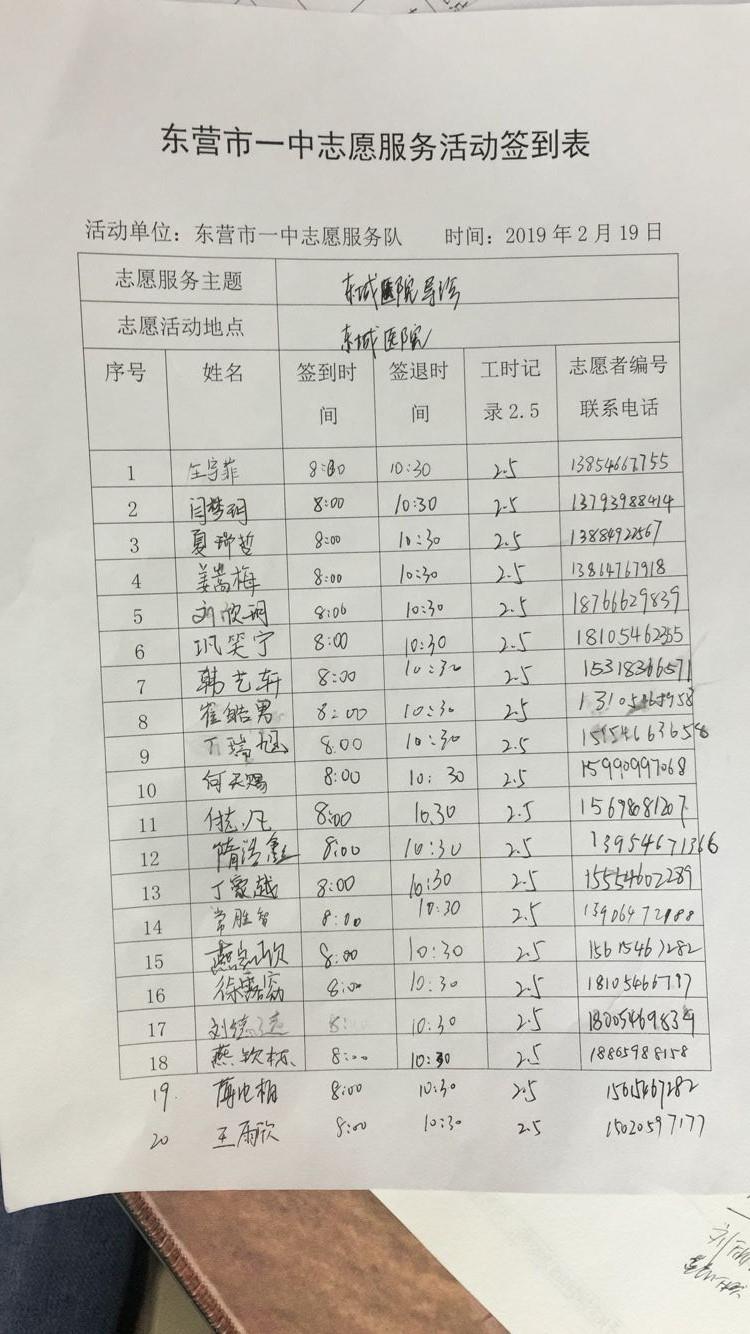 东营市一中志愿服务活动签到表
活动单位：东营市一中志愿服务队 时间：2019年2月19日
志愿服务主题 东城医院导诊
志愿活动地点 东城医院
序号 姓名 签到时间 签退时间 工时记录2.5 志愿者编号联系电话
1 8:00 10:30 2.5
2 闫梦玥 8:00 10:30 2.5 13793988414
3 夏瑞哲 8:00 10:30 2.5
4 姜嵩梅 8:00 10:30 2.5 13864767918
5 刘欣玥 8:00 10:30 2.5 18766629839
6 巩笑宁 8:00 10:30 2.5 18105462355
7 韩艺轩 8:00 10:30 2.5 15318366571
8 崔皓男 8:00 10:30 2.5
9 8:00 10:30 2.5
10 何天赐 8:00 10:30 2.5 15990997068
11 8:00 10:30 2.5 15698081207
12 隋浩鑫 8:00 10:30 2.5 13954671366
13 丁豪越 8:00 10:30 2.5 15554602289
14 常胜智 8:00 10:30 2.5
15 8:00 10:30 2.5 15615467282
16 8:00 10:30 2.5
17 10:30 2.5
18 8:00 10:30 2.5 18865988158
19. 8:00 10:30 2.5 15615467282
20 王雨欣 8:00 10:30 2.5 15020597177